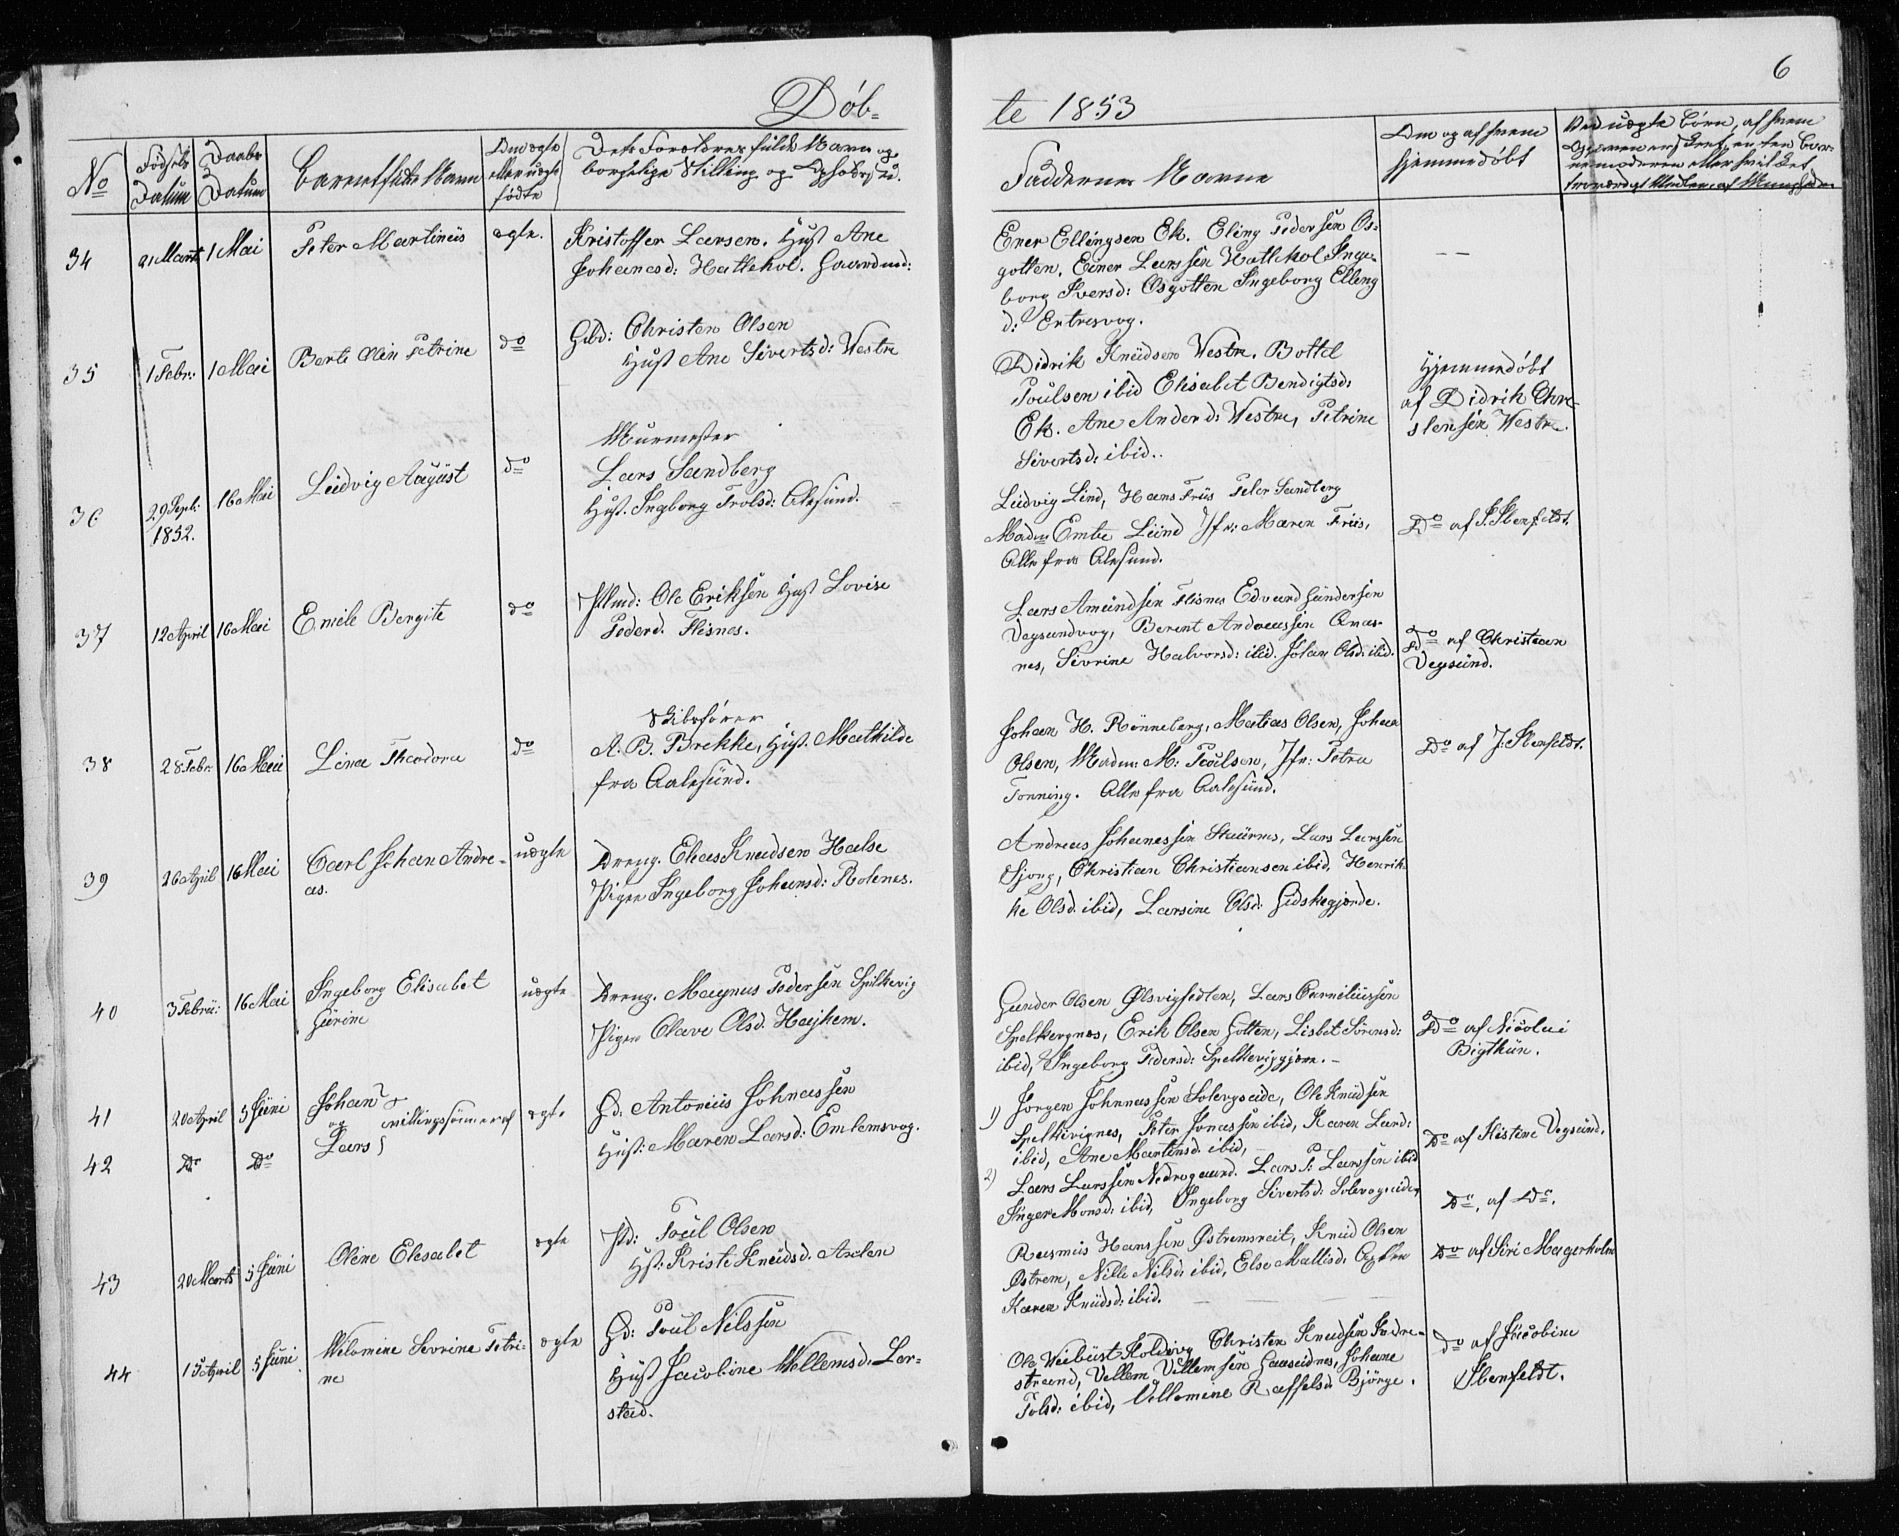 6
Döb- te 1853
No Fødsels Datum Daabs Datum Barnets fulde Navn Om ægte eller uægte fødte Dets Forældres fulde Navn og borgelige Stilling og Opholdssted.
Faddernes Navne
Om og af hvem hjemmedöbt
Ved uægte Börn, af hvem
34 21 Marts 1 Mai Peter Martinus ægte. Kristoffer Larsen. Hust Ane
Johanesd: Hatlehol. Gaardmd:
Ener Ellingsen Ek. Eling Pedersen Os-
gotten, Einer Larssen Hatlehol Inge-
borg Iversd: Osgotten Ingeborg Elling
d: Entresvog.
— —
35 1 Febr: 1 Mai Berte Olin Petrine do Gbd: Christen Olsen
Hust Ane Sivertsd: Vestre
Didrik Knudsen Vestre. Bottel
Poulsen ibid Elisabet Bendigtsd:
Ek. Ane Anderd: Vestre, Petrine
Sivertsd: ibid..
Hjemmedöbt
af Didrik Chri-
stensen Vestre.
36 29 Sept: 1852. 16 Mai Ludvig August do Murmester
Lars Sandberg
Hust. Ingborg Trolsd: Alesund.
Ludvig Lind, Hans Friis Peter Sandberg
Madm Embe Lund Jfr: Maren Friis,
Alle fra Alesund.
Do af S. Stenfeldt.
37 12 April 16 Mai Emile Bergite do Plmd: Ole Eriksen Hust Lovise
Pederd. Flisnes.
Lars Amundsen Flisnes Edvard Gundersen
Vegsundvog, Berent Andreassen Qvas-
nes, Sivrine Halvorsd: ibid. Johan Olsd: ibid.
Do af Christian
Vegsund.
38 28 Febr: 16 Mai Lina Theodora do Skibsförer
A. B. Brekke, Hust. Mathilde
fra Aalesund.
Johan H. Rönneberg, Matias Olsen, Johan
Olsen, Madm: M: Poulsen, Jfr: Petra
Tonning. Alle fra Aalesund.
Do af J: Stenfeldt.
39 26 April 16 Mai Carl Johan Andre-
as. uægte Dreng. Elias Knudsen Halse
Pigen Ingeborg Johansd: Rotenes.
Andreas Johanessen Sturnes, Lars Larssen
Sjong, Christian Christiansen ibid, Henrik-
ke Olsd: ibid, Larsine Olsd: Gidskegjerde.
40 3 Febru: 16 Mai Ingeborg Elisabet
Gurine uægte Dreng. Magnus Pedersen Spilkevig
Pigen Olave Olsd. Hajhem.
Gunder Olsen Ølsvigsedten, Lars Corneliussen
Spelkevignes, Erik Olsen Gotten, Lisbet Sörensd:
ibid, Ingeborg Pedersd: Spelkeviggjern. —
Do af Nicolai
Bigthun.
41 20 April 5 Juni Johan
og tvillingsönner af
Lars ægte Gd. Antonius Johnassen
Hust: Maren Larsd: Emlemsvog.
1) Jorgen Johnnassen Solevogseide, Ole Knudsen
Spelkevignes, Peter Jonassen ibid, Karen Lard:
ibid, Ane Martinsd. ibid,
Do af Kistine Vegsund.
42 Do Do
2) Lars Larssen Nedregaard. Lars P: Larssen ibid
Inger Monsd: ibid, Ingeborg Sivertsd: Solevogseidet
Do, af Do.
43 20 Marts 5 Juni Oline Elesabet ægte Pd: Poul Olsen
Hst: Kriste Knudsd. Aselen
Rasmus Hanssen Østremsveit, Knud Olsen
Østrem, Nille Nilsd: ibid, Else Mattisd.
Karen Knudsd: ibid.
Do af Siri Magerholm
44 15 April 5 Juni Velomine Sevrine Petri-
ne ægte Gd: Poul Nilssen
Hust Jacobine Wellemsd. Lor-
stad.
Ole Veibust Holdevog Christen Knudsen Indre-
strand, Vellem Vellemsen Gaaseidnes, Johane
Tolsd: ibid, Vellomine Raffelsd: Björge.
do af Jacobine
Stenfeldt.